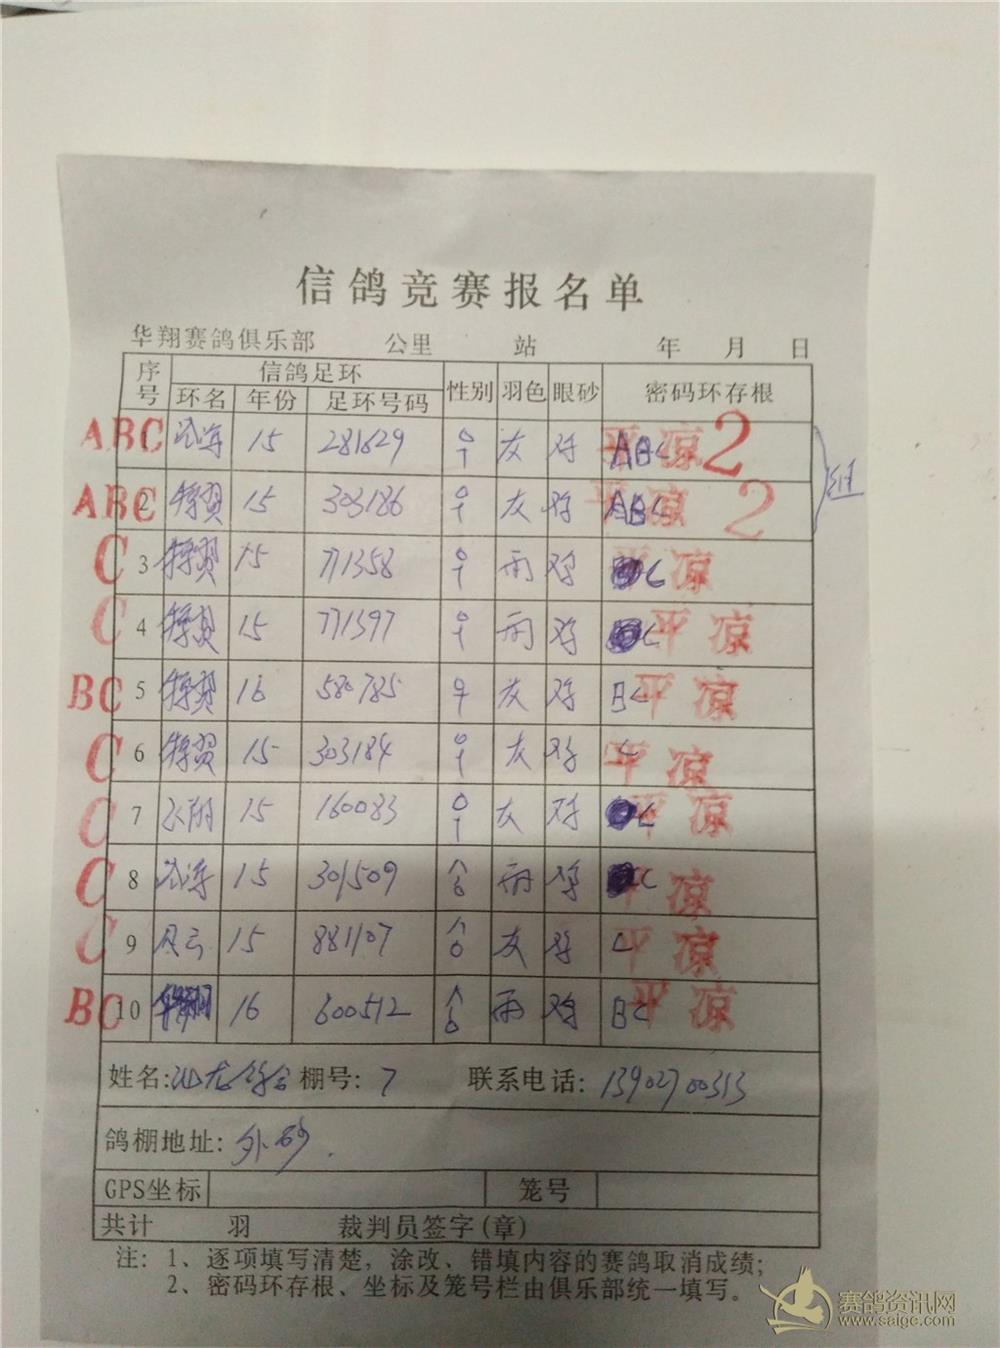 信鸽竞赛报名单
华翔赛鸽俱乐部 公里 站 年 月 日
序号 信鸽足环 性别 羽色 眼砂 密码环存根
环名 年份 足环号码
ABC 15 281629 ♀ 灰 ABC 平凉 2
ABC 2 15 303186 ♀ 灰 ABC 平凉 2
C 3 15 771358 ♀ 雨 C 平凉
C 4 15 771397 ♀ 雨 C 平凉
BC 5 16 580785 ♀ 灰 BC 平凉
C 6 15 303184 ♀ 灰 C 平凉
C 7 15 160083 ♀ 灰 C 平凉
C 8 15 301509 雨 C 平凉
C 9 风云 15 881107 灰 C 平凉
BC 10 16 600512 雨 BC 平凉
姓名: 棚号: 7 联系电话: 13902700313
鸽棚地址: 外砂
GPS坐标 笼号
共计 羽 裁判员签字(章)
注: 1、逐项填写清楚,涂改、错填内容的赛鸽取消成绩;
2、密码环存根、坐标及笼号栏由俱乐部统一填写。
赛鸽资讯网
www.saige.com